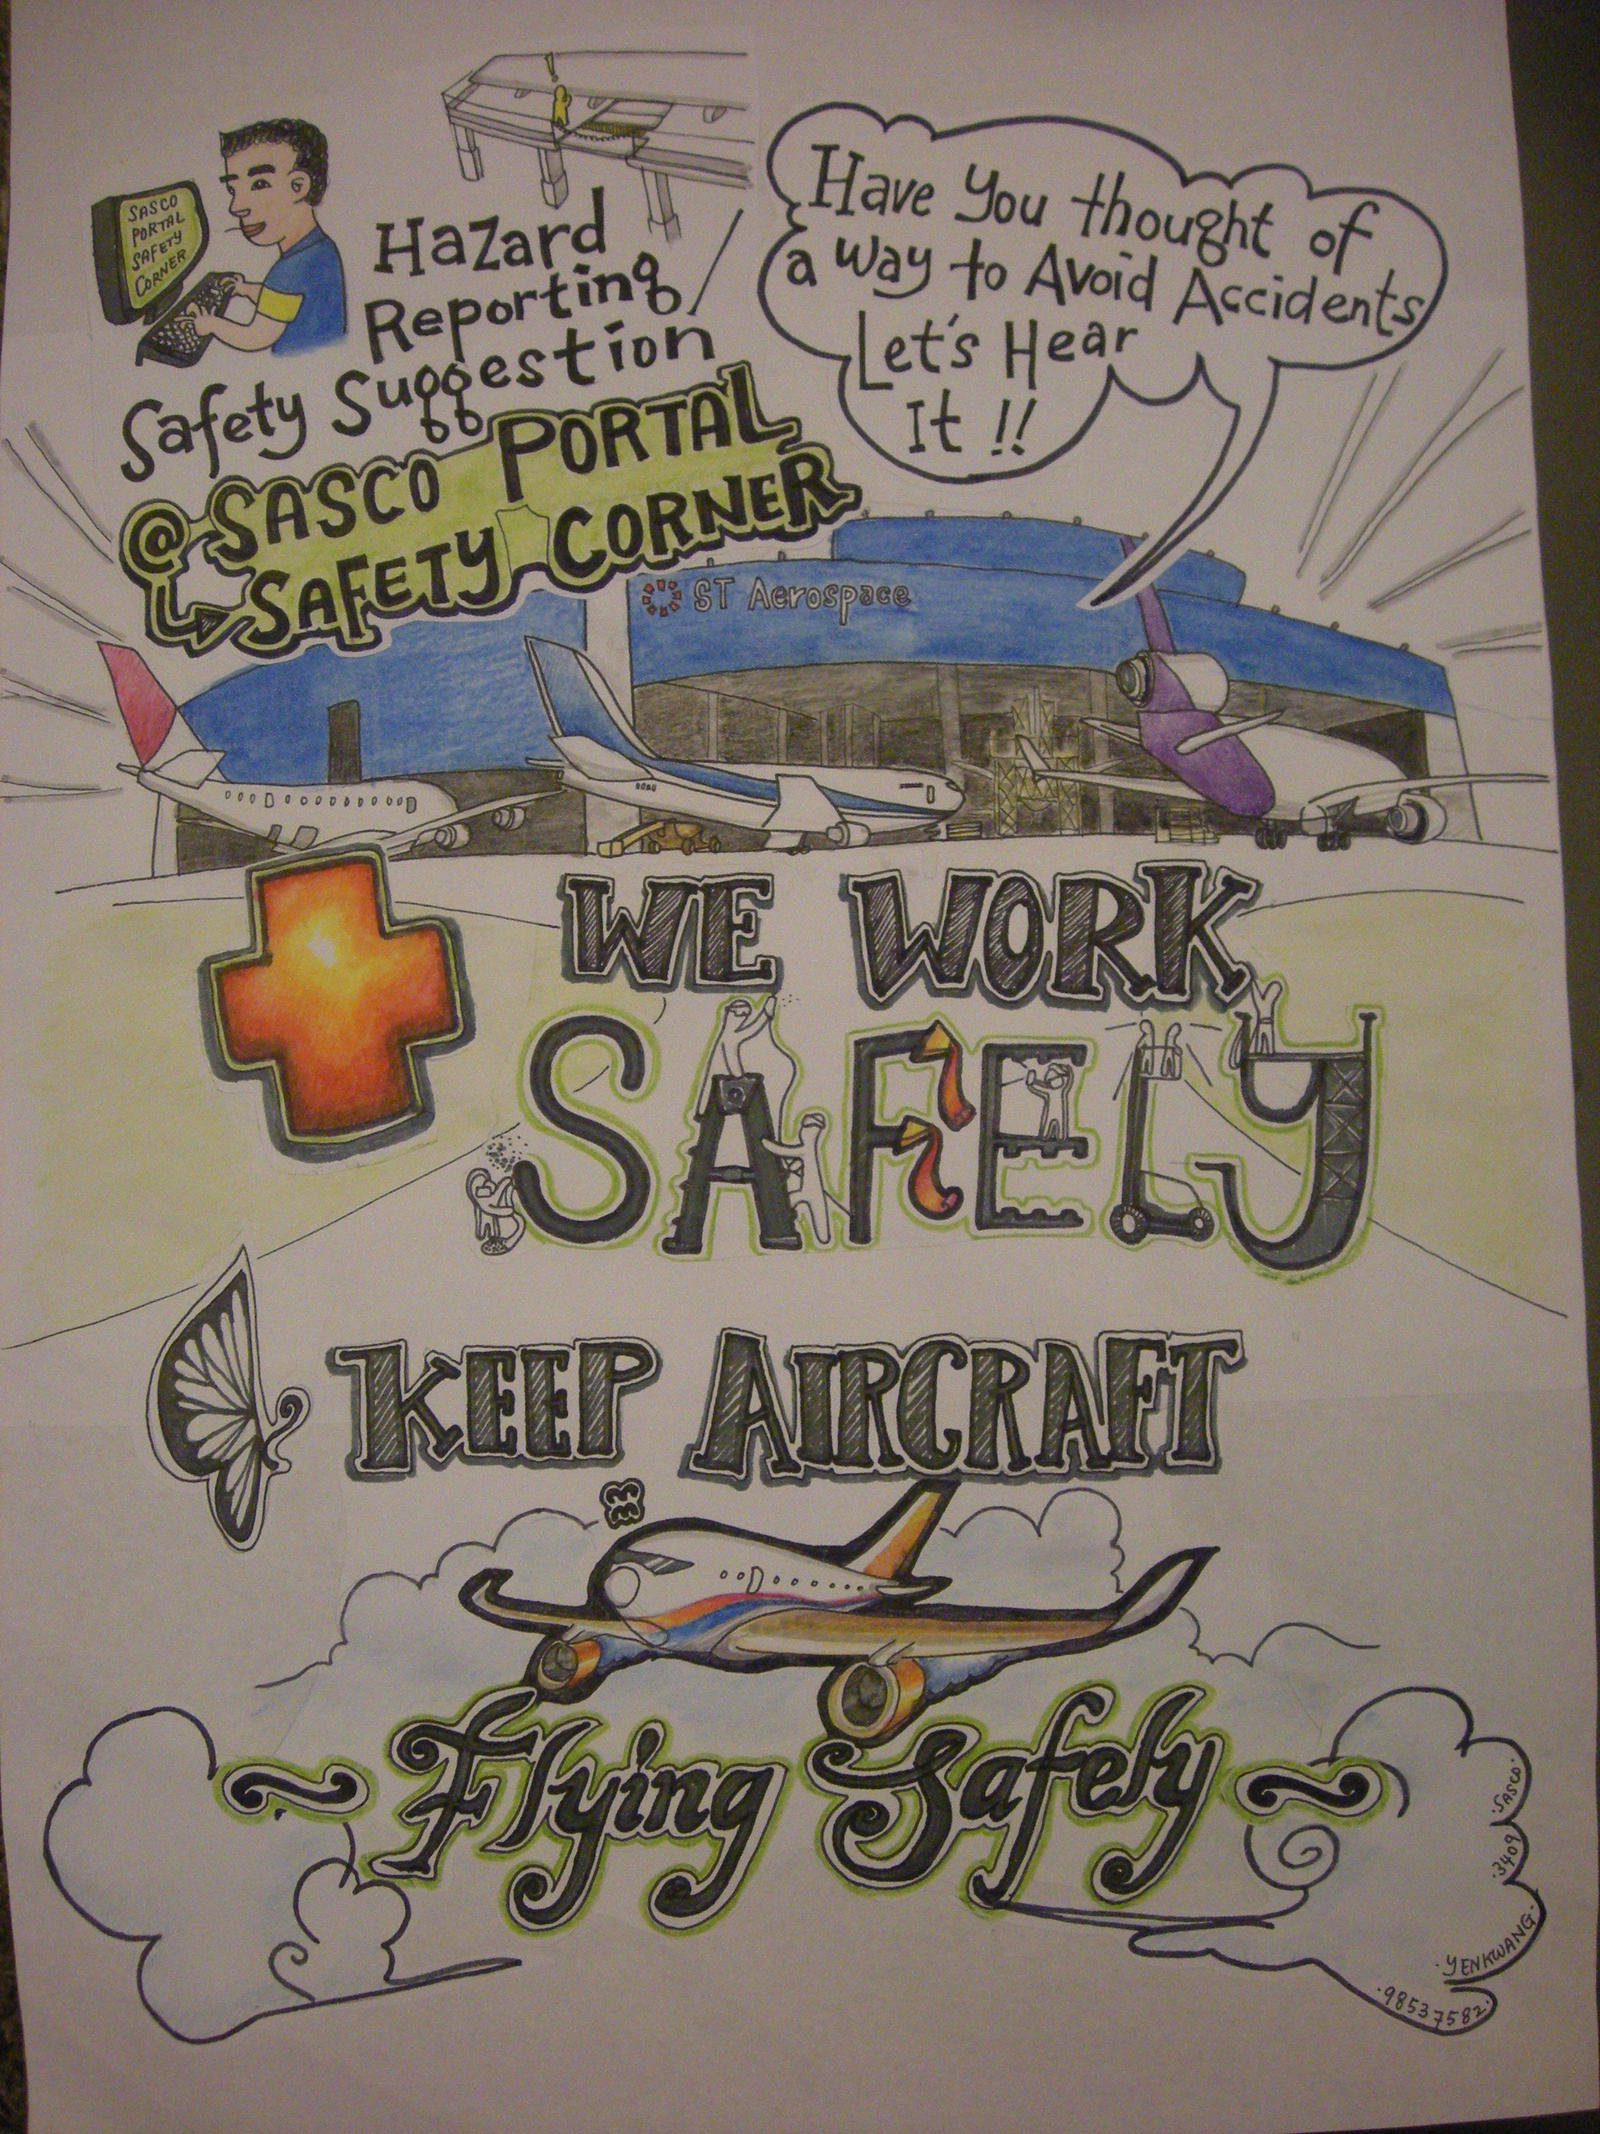 SASCO
PORTAL
SAFETY
CORNER
!
Hazard
Reporting/
Safety Suggestion
@ SASCO PORTAL
SAFETY CORNER
Have You thought of
a way to Avoid Accidents
Let's Hear
It !!
ST Aerospace
WE WORK
SAFELY
KEEP AIRCRAFT
~ Flying Safely ~
·SASCO·
·3409·
·YENKWANG·
·98537582·